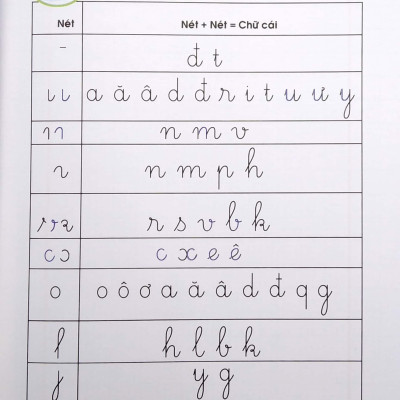 Nét Nét + Nét = Chữ cái
đ t
a ă â d đ r i t u ư y
n m v
n m p h
r s v b k
c x e ê
o ô ơ a ă â d đ q g
h l b k
y g